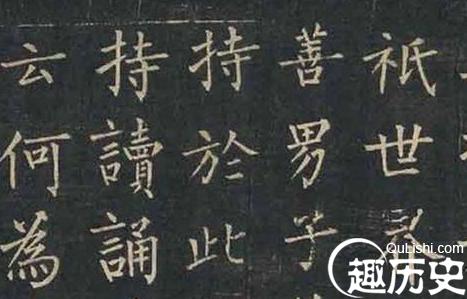 祇世
善男子
持於此
持讀誦
云何為
QuLishi.com
趣历史